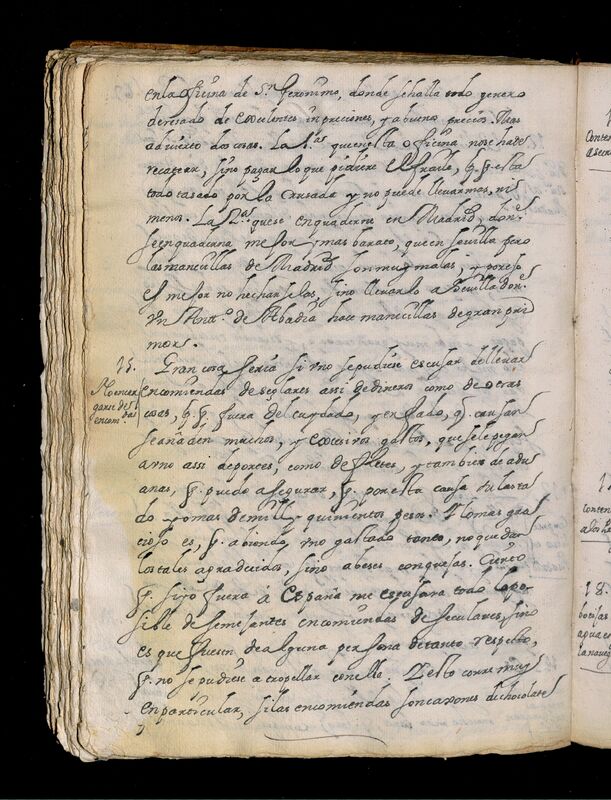 en la oficina de S.n Geronimo, donde se halla todo genero
de rezado de excelentes impreciones, y a bueno precio. Mas
advierto dos cosas. La 1.a que en esta oficina no se ha de
recatear, sino pagar lo que pidiere el fraile, p. q. esta
todo tasado por la Crusada y no puede llevar mas, ni
menos. La 2.a que se enquaderne en Madrid, don.
se enquaderna mejor, y mas barato, que en sevilla pero
las manesillas de Madrid son muy malas; y por eso
es mejor no hecharselas, sino llevarlo a Sevilla don.
Un Ant.o de Abadia hace manesillas de gran pri
mor.
15. Gran cosa seria si uno se pudiese escusar de llevar
No encar
garse de
encom.das
encomiendas de seglares assi de dineros como de otras
cosas, p. q. fuera del cuydado, y enfado, q. causan
se añaden muchos, y excesivos gastos, que se le pegan
a uno assi de portes, como de fletes, y tambien de adu
anas, q. puedo asegurar, q. por esta causa
do yo mas de mill y quinientos pesos. Y lo mas gra
cioso es, q. abiendo uno gastado tanto, no quedan
los tales agradecidos, sino a beses con quejas. Cierto
q. si yo fuera á España me escusara todo lo po
sible de semejantes encomiendas de seculares, sino
es que fuesen de alguna persona de tanto respecto,
q. no se pudiese atropellar con ella. Y esto corre muy
en particular, si las encomiendas son caxones de chocolate